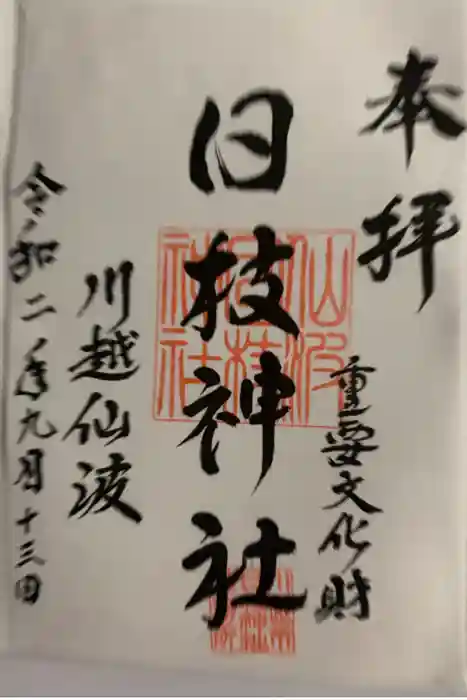 奉拝
重要文化財
日枝神社
仙波日枝神社
川越仙波
令和二年九月十三日